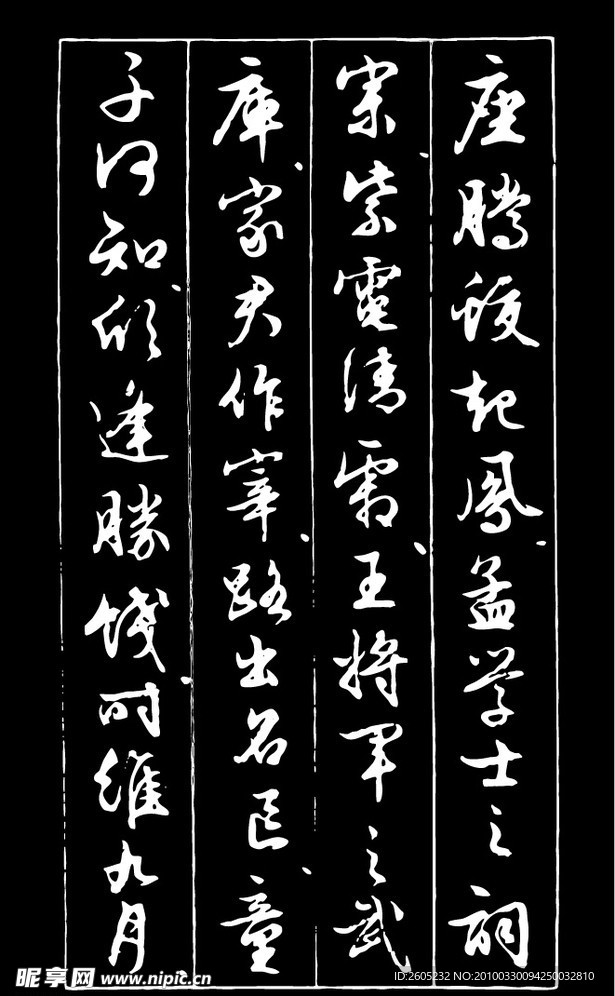 座騰蛟起鳳孟学士之詞
宗紫電清霜王将軍之武
庫家君作宰路出名區童
子何知躬逢勝餞时維九月
昵享网 www.nipic.cn
ID:2605232 NO:20100330094250032810